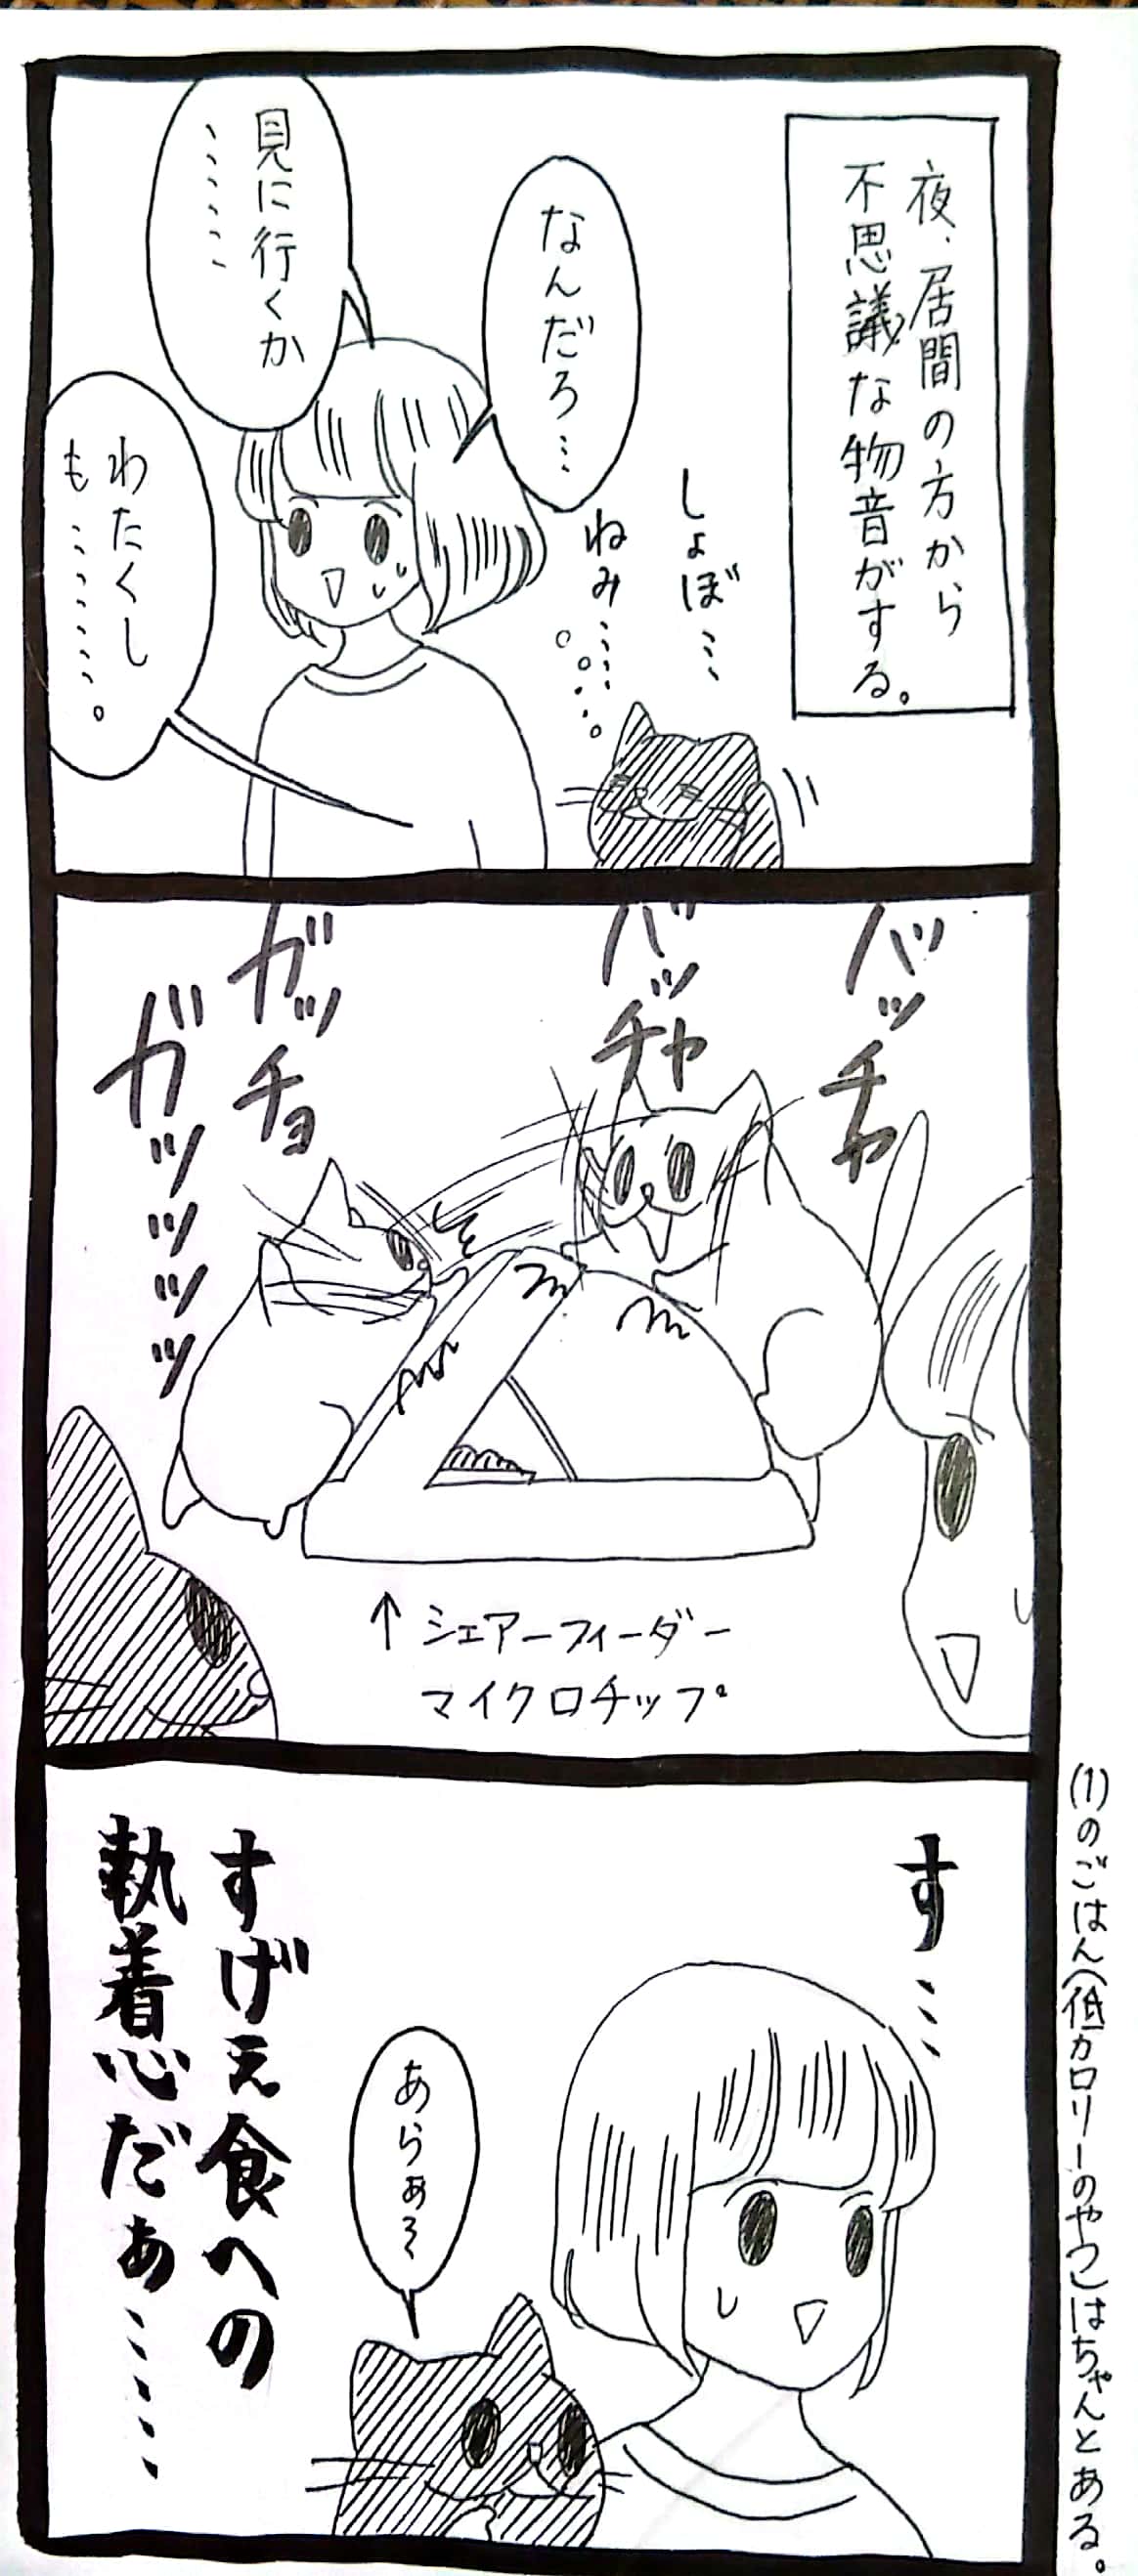 夜、居間の方から
不思議な物音がする。
なんだろ…
見に行くか
……
しょぼ…
ねみ……
わたくし
も………。
バッチャ
バッチャ
ガッチョ
ガッッッッ
↑シェアーフィーダー
マイクロチップ
す…
あらぁ〜
すげぇ食への
執着心だぁ……
(1)のごはん(低カロリーのやつ)はちゃんとある。